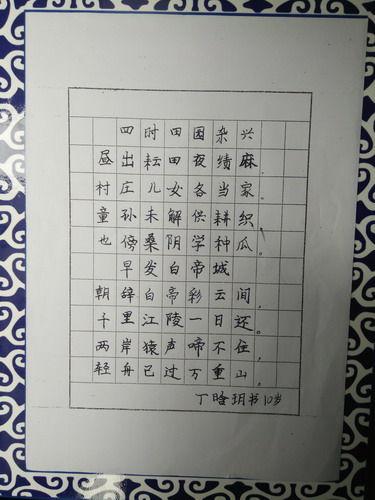 四时田园杂兴
昼出耘田夜绩麻，
村庄儿女各当家。
童孙未解供耕织，
也傍桑阴学种瓜。
早发白帝城
朝辞白帝彩云间，
千里江陵一日还。
两岸猿声啼不住，
轻舟已过万重山。
丁晗玥书10岁